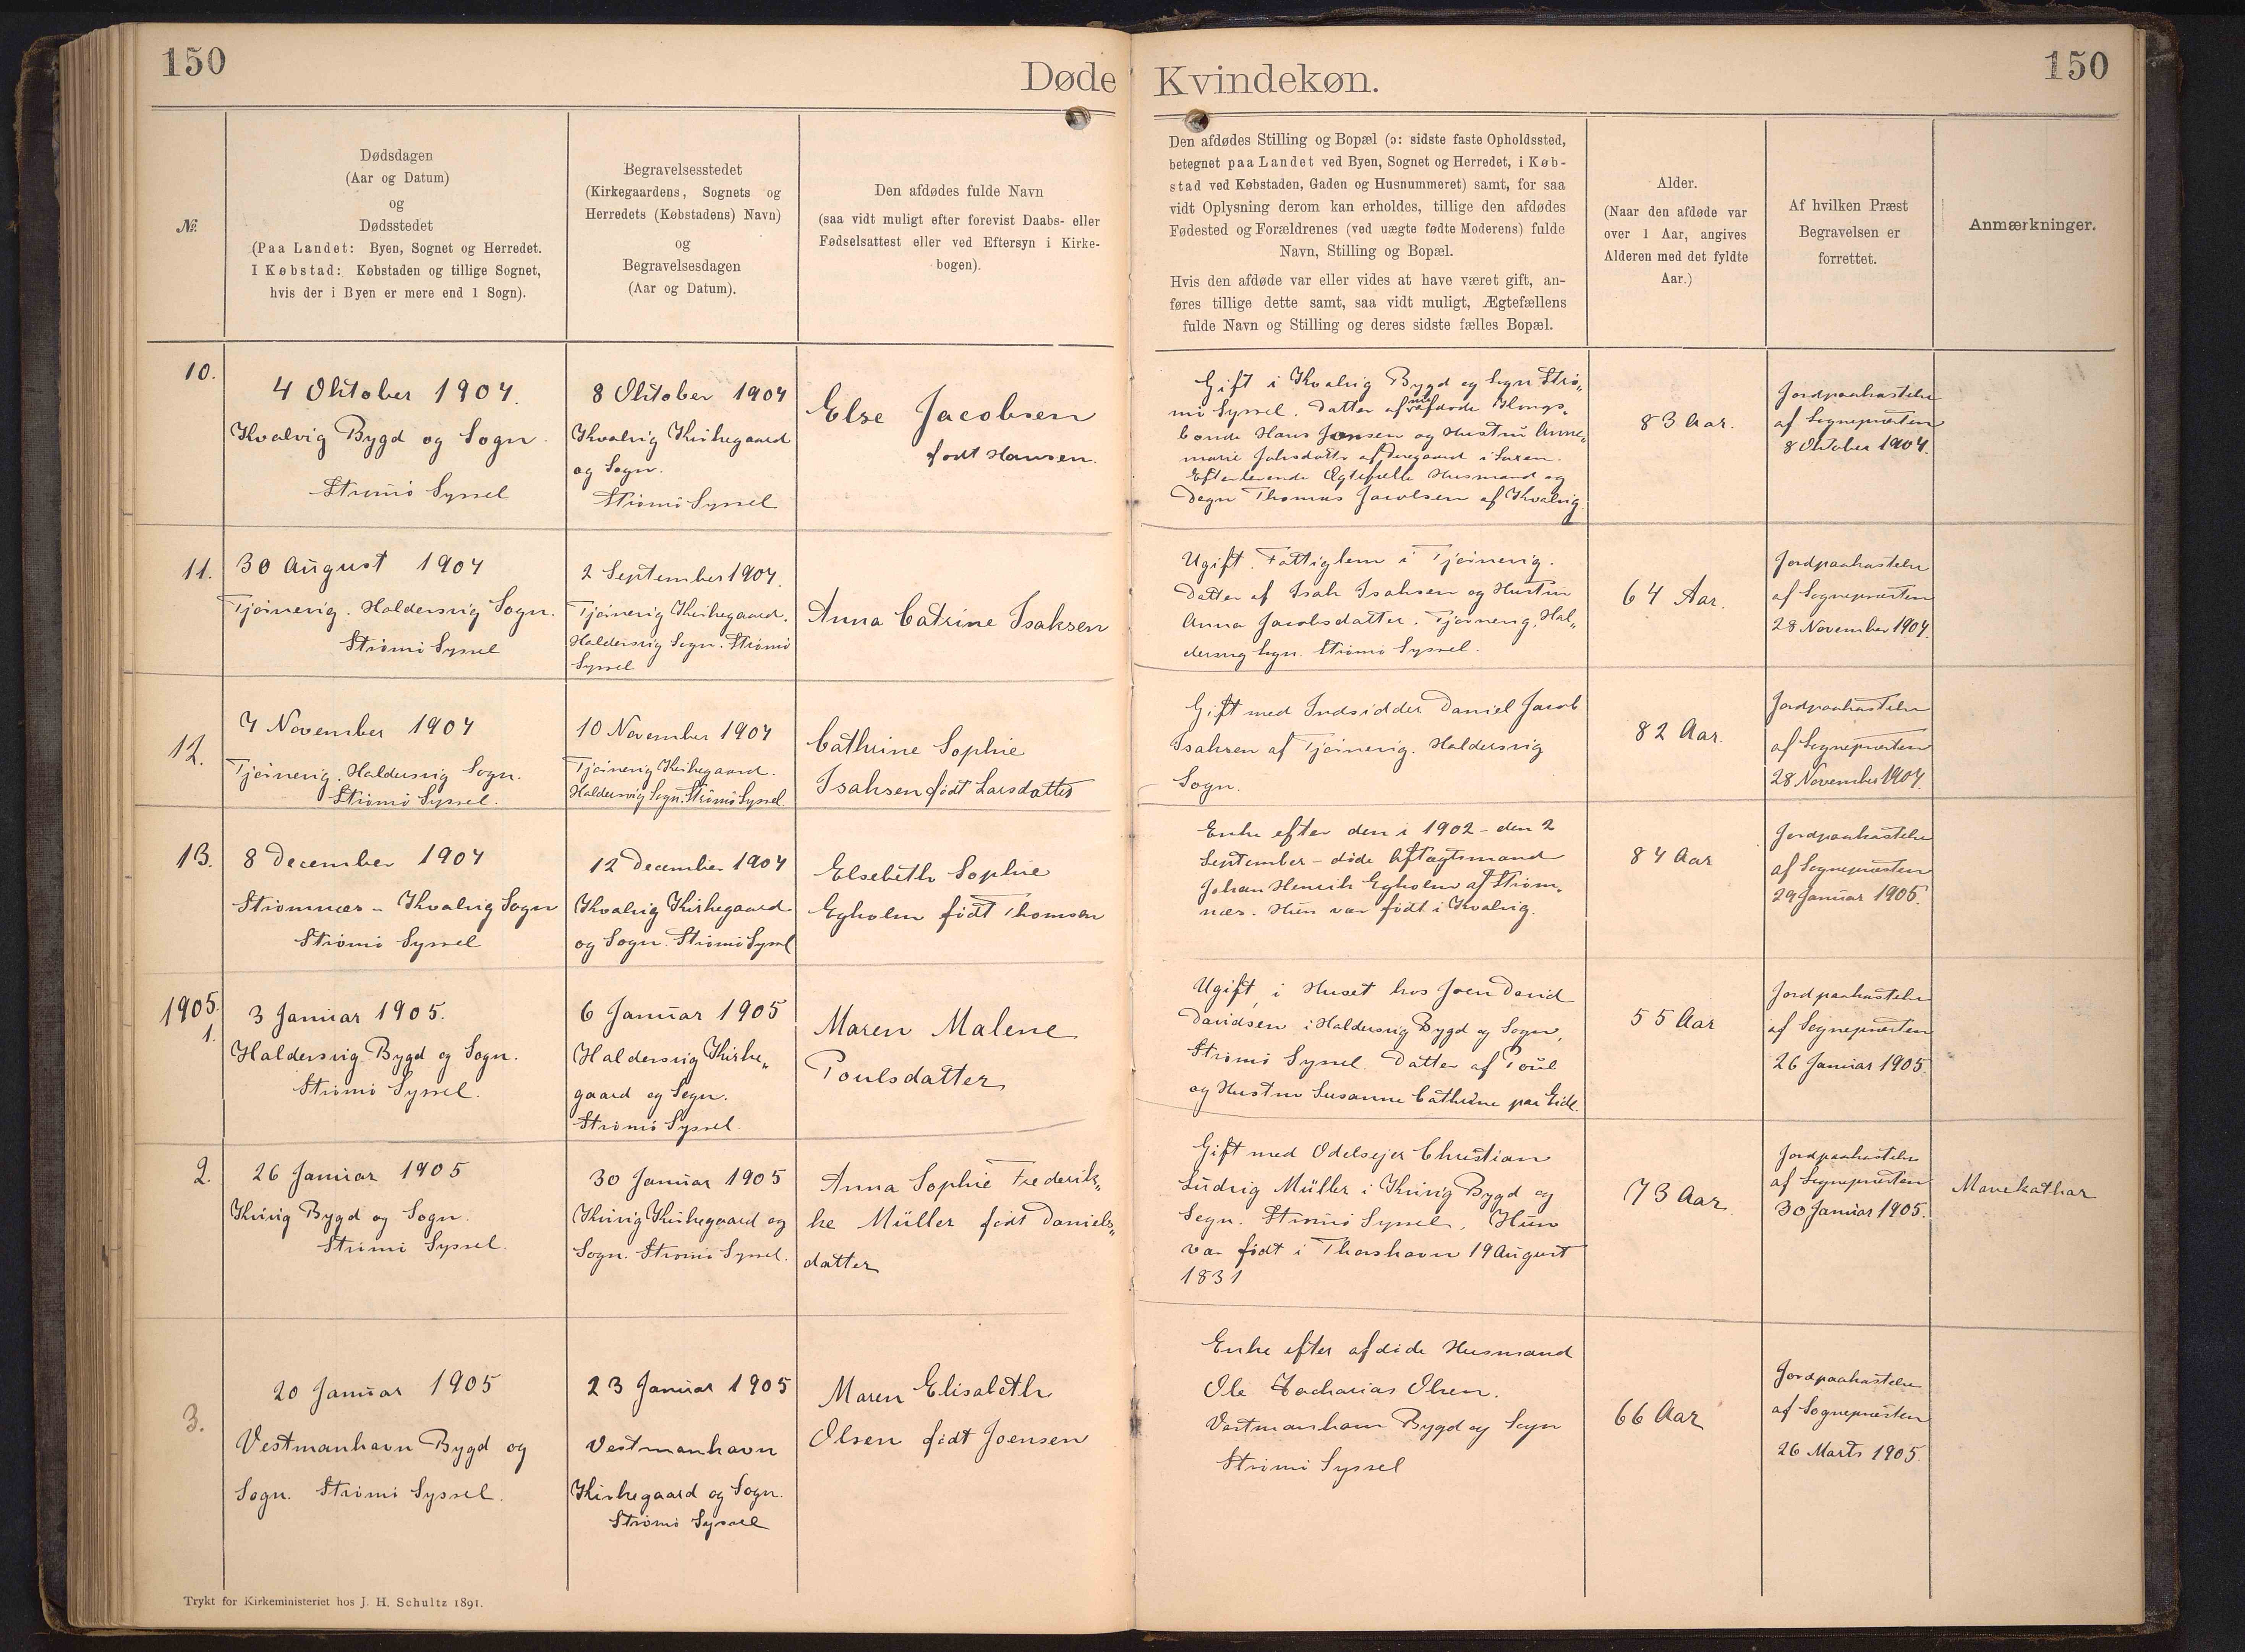 150
Døde
Kvindekøn.
150
№
Dødsdagen
(Aar og Datum)
og
Dødsstedet
(Paa Landet: Byen, Sognet og Herredet.
I Købstad: Købstaden og tillige Sognet,
hvis der i Byen er mere end 1 Sogn).
Begravelsesstedet
(Kirkegaardens, Sognets og
Herredets (Købstadens) Navn)
og
Begravelsesdagen
(Aar og Datum).
Den afdødes fulde Navn
(saa vidt muligt efter forevist Daabs- eller
Fødselsattest eller ved Eftersyn i Kirke-
bogen).
Den afdødes Stilling og Bopæl (ɔ: sidste faste Opholdssted,
betegnet paa Landet ved Byen, Sognet og Herredet, i Køb-
stad ved Købstaden, Gaden og Husnummeret) samt, for saa
vidt Oplysning derom kan erholdes, tillige den afdødes
Fødested og Forældrenes (ved uægte fødte Moderens) fulde
Navn, Stilling og Bopæl.
Hvis den afdøde var eller vides at have været gift, an-
føres tillige dette samt, saa vidt muligt, Ægtefællens
fulde Navn og Stilling og deres sidste fælles Bopæl.
Alder.
(Naar den afdøde var
over 1 Aar, angives
Alderen med det fyldte
Aar.)
Af hvilken Præst
Begravelsen er
forrettet.
Anmærkninger.
10.
4 Oktober 1904.
Kvalvig Bygd og Sogn.
Strømø Syssel
8 Oktober 1904
Kvalvig Kirkegaard
og Sogn.
Strømø Syssel
Else Jacobsen
født Hansen.
Gift i Kvalvig Bygd og Sogn Strø„
mø Syssel. Datter af nu afdøde Kongs„
bonde Hans Jensen og Hustru Anne„
marie Johsdatter af i Saxen.
Efterlevende Ægtefælle Husmand og
Degn Thomas Jacobsen af Kvalvig.
83 Aar.
Jordpaakastelse
af Sognepræsten
8 Oktober 1904.
11.
30 August 1904
Tjørnevig. Haldersvig Sogn.
Strømø Syssel
2 September 1904.
Tjørnevig Kirkegaard.
Haldersvig Sogn. Strømø
Syssel
Anna Catrine Isaksen
Ugift. Fattiglem i Tjørnevig.
Datter af Isak Isaksen og Hustru
Anna Jacobsdatter. Tjørnevig, Hal„
dersvig Sogn. Strømø Syssel.
64 Aar.
Jordpaakastelse
af Sognepræsten
28 November 1904.
12.
7 November 1904
Tjørnevig. Haldersvig Sogn.
Strømø Syssel.
10 November 1904
Tjørnevig Kirkegaard.
Haldersvig Sogn. Strømø Syssel
Cathrine Sophie
Isaksen født Larsdatter
Gift med Indsidder Daniel Jacob
Isaksen af Tjørnevig. Haldersvig
Sogn.
82 Aar.
Jordpaakastelse
af Sognepræsten
28 November 1904.
13.
8 December 1904
Strømnæs - Kvalvig Sogn
Strømø Syssel
12 December 1904
Kvalvig Kirkegaard
og Sogn. Strømø Syssel
Elsebeth Sophie
Egholm født Thomsen
Enke efter den i 1902 - den 2
September - døde Aftægtsmand
Johan Henrik Egholm af Strøm„
næs. Hun var født i Kvalvig.
84 Aar
Jordpaakastelse
af Sognepræsten
29 Januar 1905.
1905.
1.
3 Januar 1905.
Haldersvig Bygd og Sogn.
Strømø Syssel.
6 Januar 1905
Haldersvig Kirke„
gaard og Sogn.
Strømø Syssel.
Maren Malene
Poulsdatter
Ugift, i Huset hos Joen David
Davidsen i Haldersvig Bygd og Sogn,
Strømø Syssel. Datter af Poul
og Hustru Susanne Cathrine paa Eide.
55 Aar
Jordpaakastelse
af Sognepræsten
26 Januar 1905.
2.
26 Januar 1905
Kvivig Bygd og Sogn.
Strømø Syssel.
30 Januar 1905
Kvivig Kirkegaard og
Sogn. Strømø Syssel.
Anna Sophie Frederik„
ke Müller født Daniels„
datter
Gift med Odelsejer Christian
Ludvig Müller i Kvivig Bygd og
Sogn. Strømø Syssel. Hun
var født i Thorshavn 19 August
1831
73 Aar.
Jordpaakastelse
af Sognepræsten
30 Januar 1905.
Mavekathar
3.
20 Januar 1905
Vestmanhavn Bygd og
Sogn. Strømø Syssel.
23 Januar 1905
Vestmanhavn
Kirkegaard og Sogn.
Strømø Syssel
Maren Elisabeth
Olsen født Joensen
Enke efter afdøde Husmand
Ole Zacharias Olsen.
Vestmanhavn Bygd og Sogn
Strømø Syssel
66 Aar
Jordpaakastelse
af Sognepræsten
26 Marts 1905.
Trykt for Kirkeministeriet hos J. H. Schultz 1891.